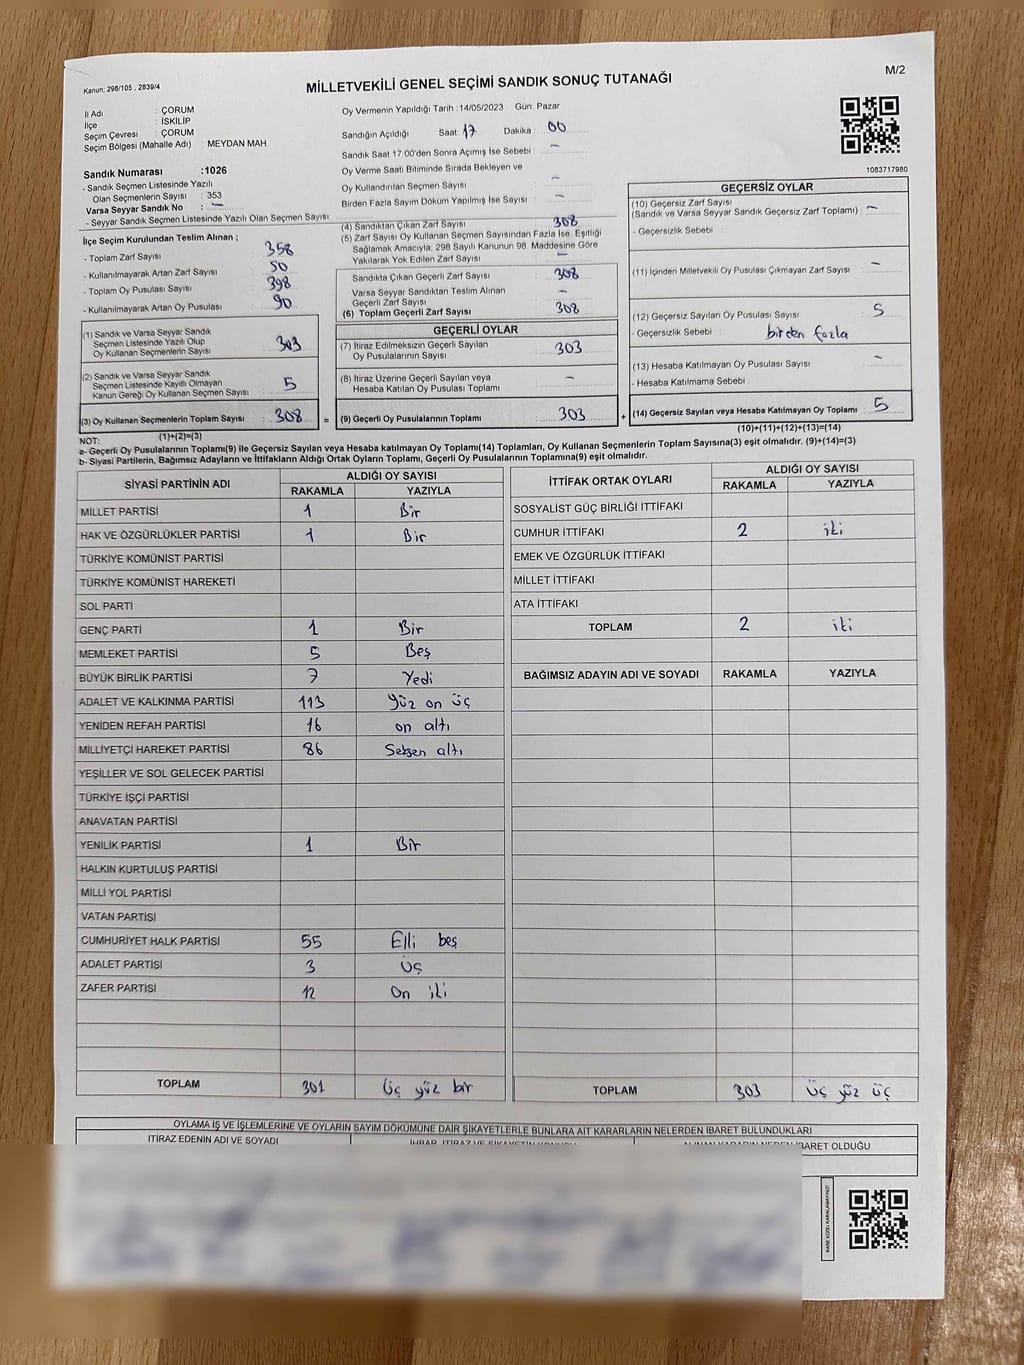 M/2
Kanun: 298/105 , 2839/4
MİLLETVEKİLİ GENEL SEÇİMİ SANDIK SONUÇ TUTANAĞI
İl Adı : ÇORUM
İlçe : İSKİLİP
Seçim Çevresi : ÇORUM
Seçim Bölgesi (Mahalle Adı) : MEYDAN MAH.
Sandık Numarası :1026
- Sandık Seçmen Listesinde Yazılı
Olan Seçmenlerin Sayısı : 353
Varsa Seyyar Sandık No : -
- Seyyar Sandık Seçmen Listesinde Yazılı Olan Seçmen Sayısı:
Oy Vermenin Yapıldığı Tarih :14/05/2023 Gün: Pazar
Sandığın Açıldığı Saat: 17 Dakika : 00
Sandık Saat 17:00'den Sonra Açımış İse Sebebi : -
Oy Verme Saati Bitiminde Sırada Bekleyen ve
Oy Kullandırılan Seçmen Sayısı : -
Birden Fazla Sayım Döküm Yapılmış İse Sayısı : -
1083717980
İlçe Seçim Kurulundan Teslim Alınan ;
- Toplam Zarf Sayısı : 358
- Kullanılmayarak Artan Zarf Sayısı : 50
- Toplam Oy Pusulası Sayısı : 398
- Kullanılmayarak Artan Oy Pusulası : 90
(1) Sandık ve Varsa Seyyar Sandık
Seçmen Listesinde Yazılı Olup
Oy Kullanan Seçmenlerin Sayısı : 303
(2) Sandık ve Varsa Seyyar Sandık
Seçmen Listesinde Kayıtlı Olmayan
Kanun Gereği Oy Kullanan Seçmen Sayısı : 5
(3) Oy Kullanan Seçmenlerin Toplam Sayısı : 308
(1)+(2)=(3)
(4) Sandıktan Çıkan Zarf Sayısı : 308
(5) Zarf Sayısı Oy Kullanan Seçmen Sayısından Fazla İse, Eşitliği
Sağlamak Amacıyla, 298 Sayılı Kanunun 98. Maddesine Göre
Yakılarak Yok Edilen Zarf Sayısı : -
Sandıkta Çıkan Geçerli Zarf Sayısı : 308
Varsa Seyyar Sandıktan Teslim Alınan
Geçerli Zarf Sayısı : -
(6) Toplam Geçerli Zarf Sayısı : 308
GEÇERLİ OYLAR
(7) İtiraz Edilmeksizin Geçerli Sayılan
Oy Pusulalarının Sayısı : 303
(8) İtiraz Üzerine Geçerli Sayılan veya
Hesaba Katılan Oy Pusulası Toplamı : -
= (9) Geçerli Oy Pusulalarının Toplamı : 303 +
GEÇERSİZ OYLAR
(10) Geçersiz Zarf Sayısı
(Sandık ve Varsa Seyyar Sandık Geçersiz Zarf Toplamı) : -
- Geçersizlik Sebebi :
(11) İçinden Milletvekili Oy Pusulası Çıkmayan Zarf Sayısı : -
(12) Geçersiz Sayılan Oy Pusulası Sayısı : 5
- Geçersizlik Sebebi : birden fazla
(13) Hesaba Katılmayan Oy Pusulası Sayısı : -
- Hesaba Katılmama Sebebi :
(14) Geçersiz Sayılan veya Hesaba Katılmayan Oy Toplamı : 5
(10)+(11)+(12)+(13)=(14)
NOT:
a- Geçerli Oy Pusulalarının Toplamı(9) ile Geçersiz Sayılan veya Hesaba katılmayan Oy Toplamı(14) Toplamları, Oy Kullanan Seçmenlerin Toplam Sayısına(3) eşit olmalıdır. (9)+(14)=(3)
b- Siyasi Partilerin, Bağımsız Adayların ve İttifakların Aldığı Ortak Oyların Toplamı, Geçerli Oy Pusulalarının Toplamına(9) eşit olmalıdır.
SİYASİ PARTİNİN ADI ALDIĞI OY SAYISI
RAKAMLA YAZIYLA
MİLLET PARTİSİ 1 Bir
HAK VE ÖZGÜRLÜKLER PARTİSİ 1 Bir
TÜRKİYE KOMÜNİST PARTİSİ
TÜRKİYE KOMÜNİST HAREKETİ
SOL PARTİ
GENÇ PARTİ 1 Bir
MEMLEKET PARTİSİ 5 Beş
BÜYÜK BİRLİK PARTİSİ 7 Yedi
ADALET VE KALKINMA PARTİSİ 113 Yüz on üç
YENİDEN REFAH PARTİSİ 16 on altı
MİLLİYETÇİ HAREKET PARTİSİ 86 Seksen altı
YEŞİLLER VE SOL GELECEK PARTİSİ
TÜRKİYE İŞÇİ PARTİSİ
ANAVATAN PARTİSİ
YENİLİK PARTİSİ 1 Bir
HALKIN KURTULUŞ PARTİSİ
MİLLİ YOL PARTİSİ
VATAN PARTİSİ
CUMHURİYET HALK PARTİSİ 55 Elli beş
ADALET PARTİSİ 3 Üç
ZAFER PARTİSİ 12 On iki
TOPLAM 301 Üç yüz bir
İTTİFAK ORTAK OYLARI ALDIĞI OY SAYISI
RAKAMLA YAZIYLA
SOSYALİST GÜÇ BİRLİĞİ İTTİFAKI
CUMHUR İTTİFAKI 2 iki
EMEK VE ÖZGÜRLÜK İTTİFAKI
MİLLET İTTİFAKI
ATA İTTİFAKI
TOPLAM 2 iki
BAĞIMSIZ ADAYIN ADI VE SOYADI RAKAMLA YAZIYLA
TOPLAM 303 Üç yüz üç
OYLAMA İŞ VE İŞLEMLERİNE VE OYLARIN SAYIM DÖKÜMÜNE DAİR ŞİKAYETLERLE BUNLARA AİT KARARLARIN NELERDEN İBARET BULUNDUKLARI
İTİRAZ EDENİN ADI VE SOYADI İHBAR, İTİRAZ VE ŞİKAYETİN KONUSU ALINAN KARARIN NEDEN İBARET OLDUĞU
KARE KODU KARALAMAYINIZ!